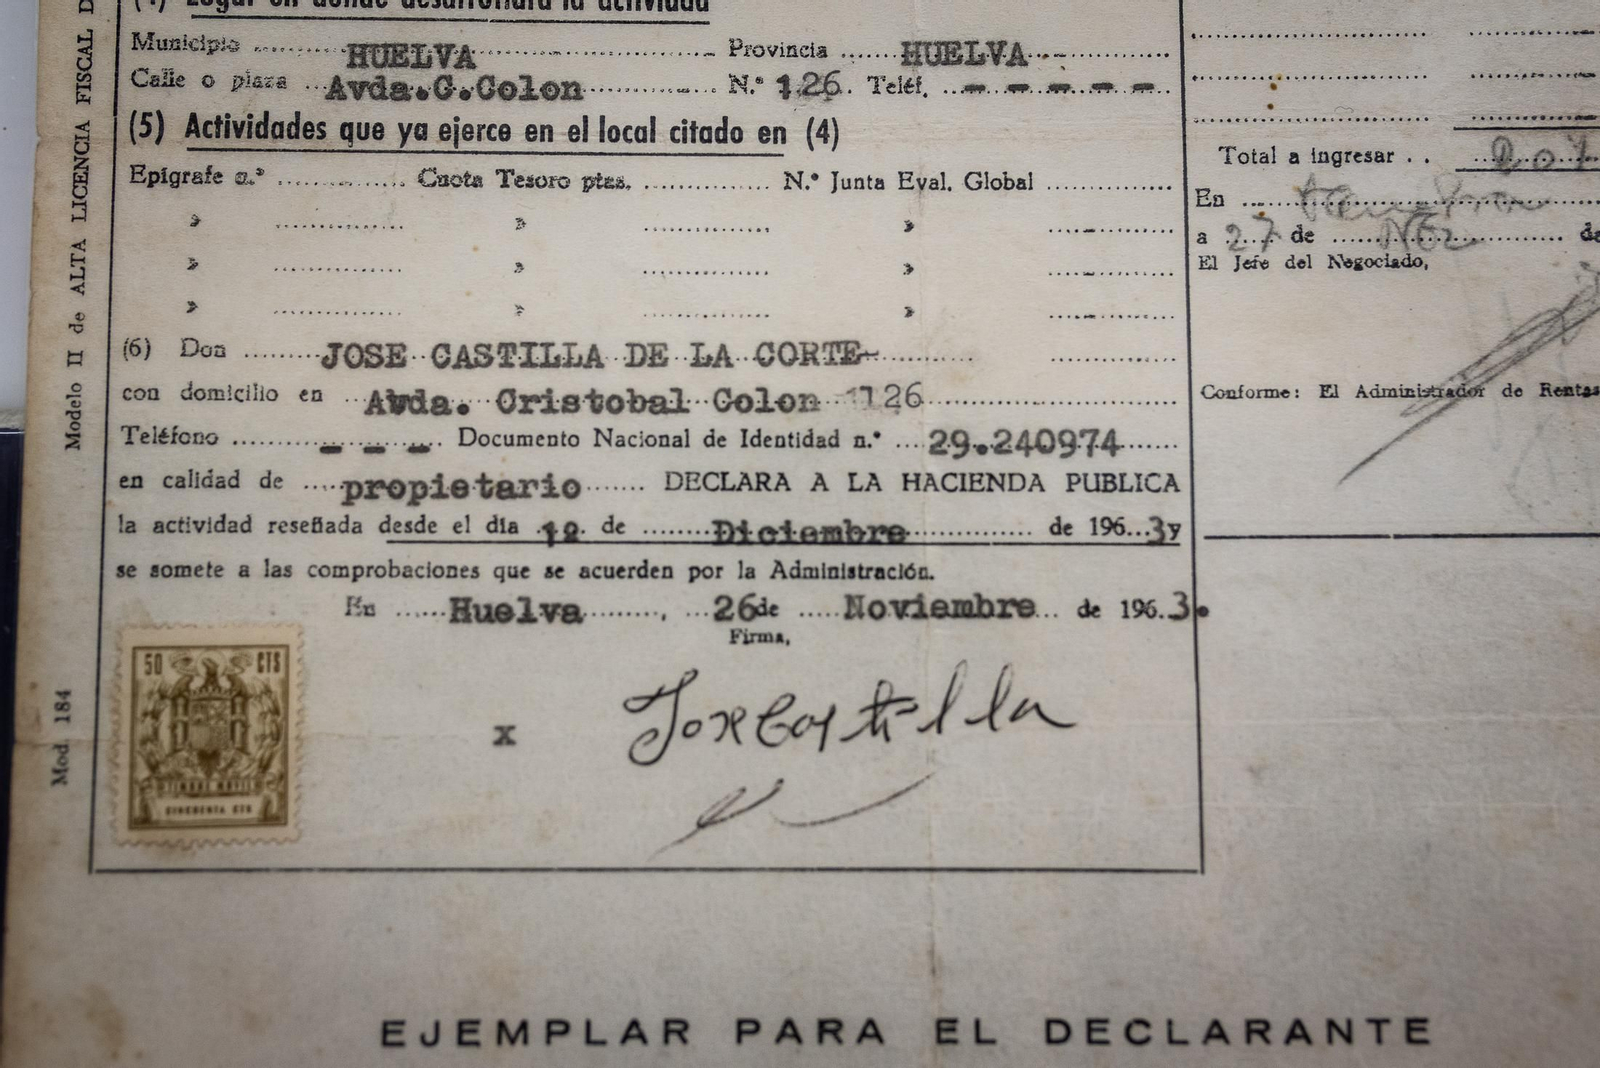 (4) Lugar en donde desarrollará la actividad
Municipio HUELVA Provincia HUELVA
Calle o plaza Avda.C.Colon N.º 126. Teléf. - - - - -
(5) Actividades que ya ejerce en el local citado en (4)
Epígrafe n.º Cuota Tesoro ptas. N.º Junta Eval. Global
» » »
» » »
» » »
(6) Don JOSE CASTILLA DE LA CORTE-
con domicilio en Avda. Cristobal Colon 126
Teléfono - - - Documento Nacional de Identidad n.º 29.240974
en calidad de propietario DECLARA A LA HACIENDA PUBLICA
la actividad reseñada desde el día 1º de Diciembre de 1963 y
se somete a las comprobaciones que se acuerden por la Administración.
En Huelva, 26 de Noviembre de 1963.
Firma,
x Jose Castilla
50 CTS
TIMBRE MOVIL
CINCUENTA CTS
Total a ingresar
En
a 27 de
El Jefe del Negociado,
Conforme: El Administrador de Rentas
Modelo II de ALTA LICENCIA FISCAL D
Mod. 184
EJEMPLAR PARA EL DECLARANTE